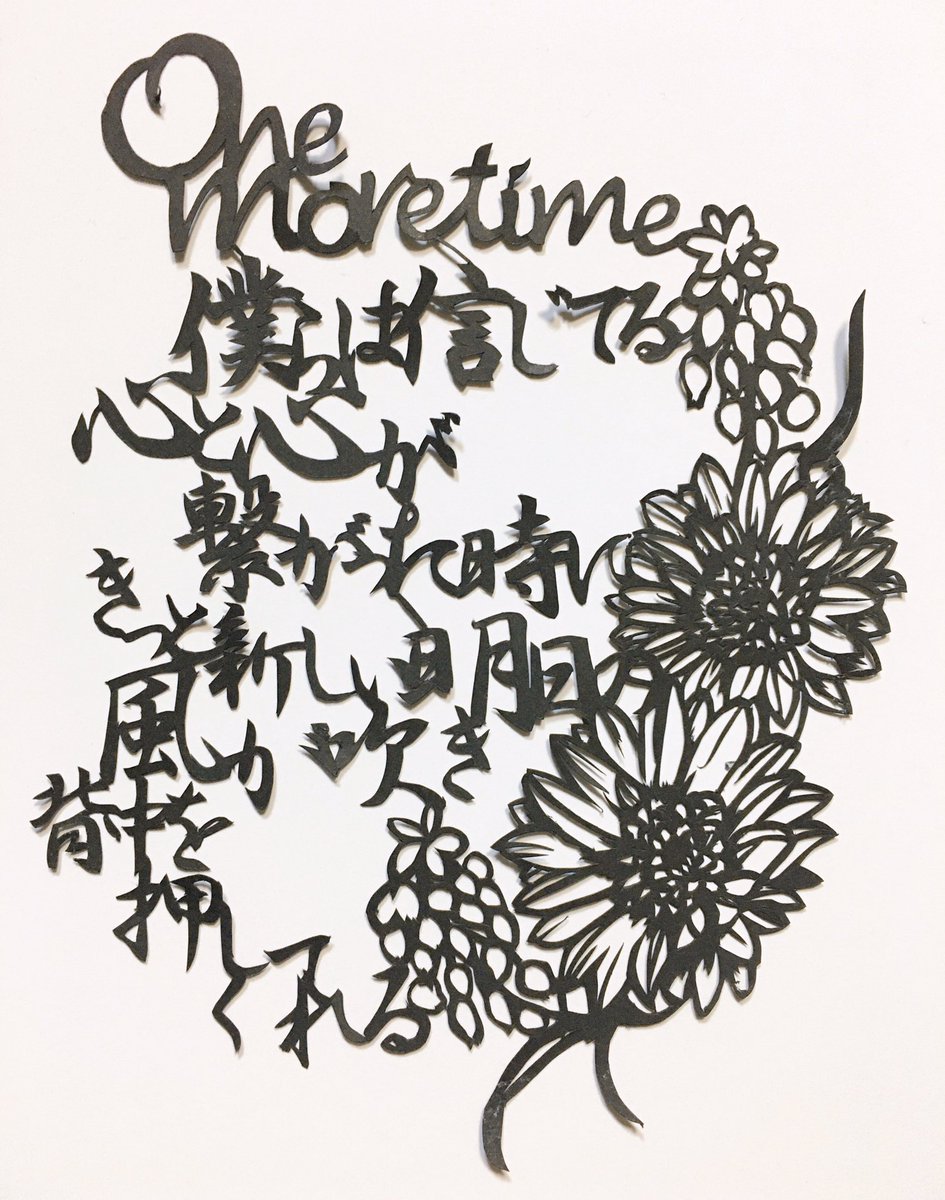 One
More time
僕らは信じてる
心と心が
繋がれた時
きっと新しい明日の
風が吹き
背中を
押して
くれる